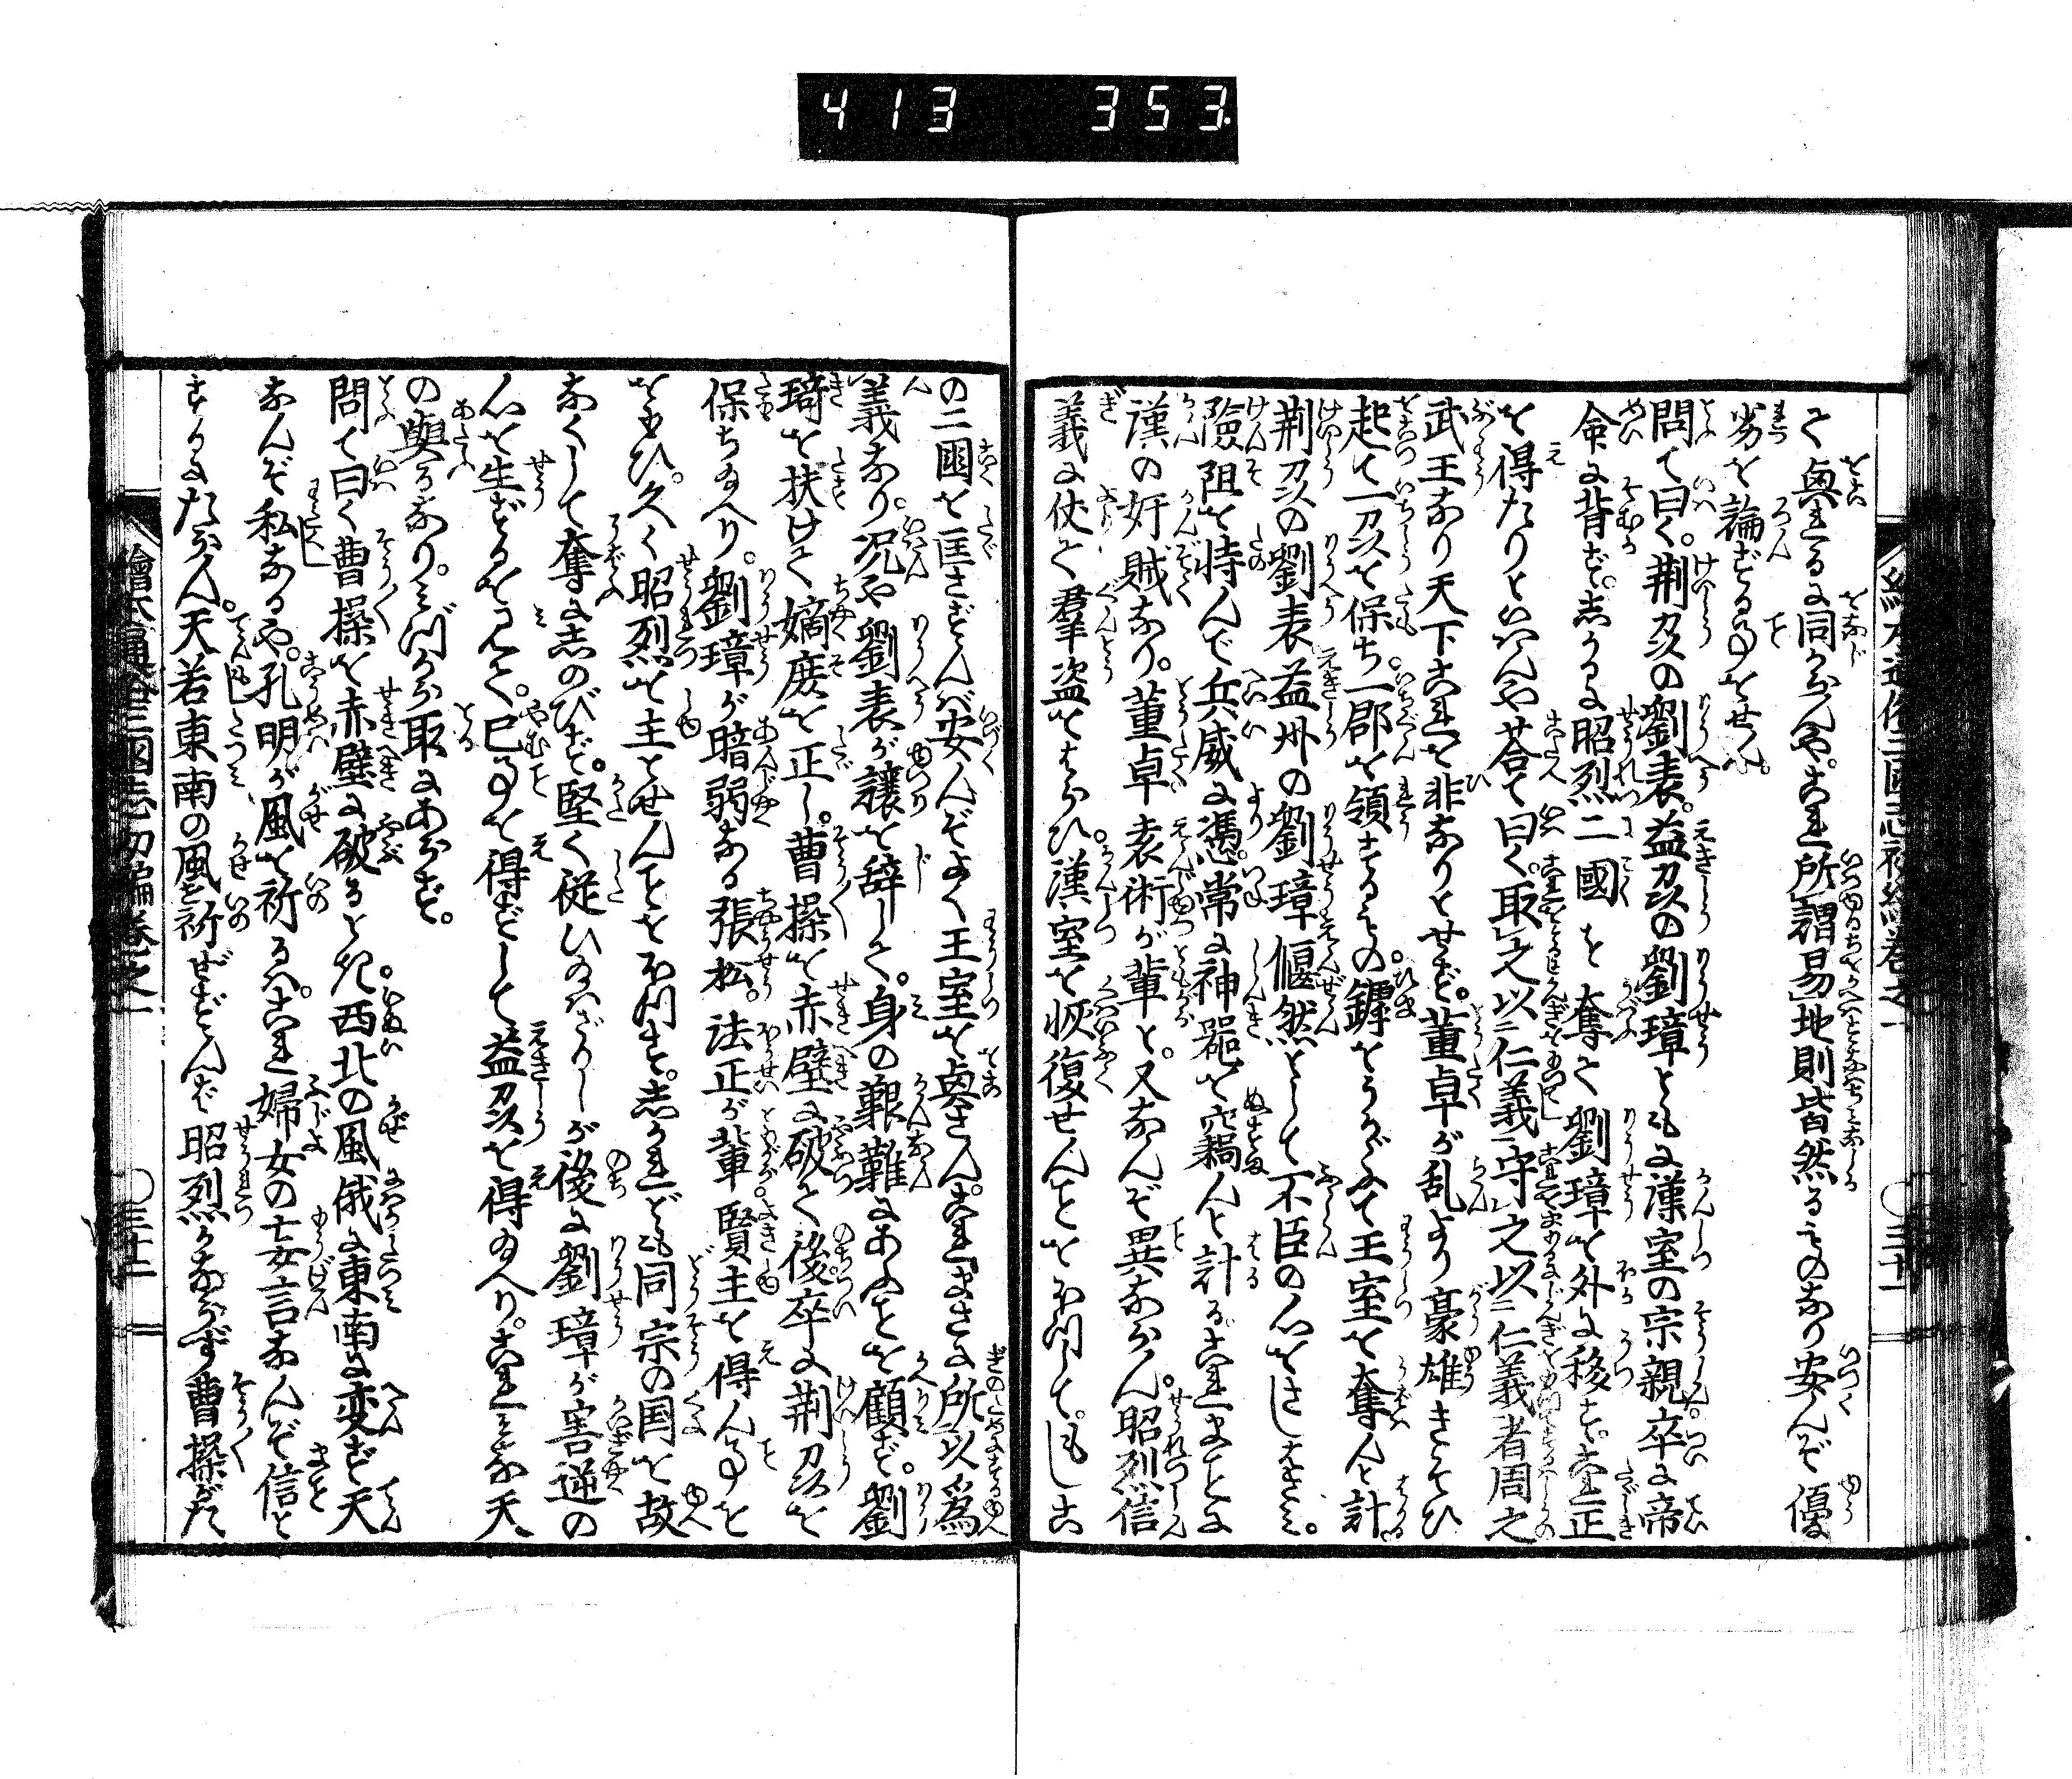 413 353
て興れるに同からんや。これ所謂易地則皆然るものなり安んぞ優
劣を論ずる事をせん。
問て曰く。荆州の劉表。益州の劉璋ともに漢室の宗親卒に帝
命に背ず。しかるに昭烈二國を奪て劉璋を外に移す。是正
を得たりといはんや荅て曰く。取之以仁義守之以仁義者周之
武王なり天下これを非なりとせず。董卓が乱より豪雄きそひ
起て一州を保ち。一郡を領するもの。釁をうかゞふて王室を奪んと計
荆州の劉表益州の劉璋偃然として不臣の心をさしはさみ。
險阻を恃んで兵威に憑。常に神器を竊んと計る。これまことに
漢の奸賊なり。董卓袁術が輩と。又なんぞ異ならん。昭烈信
義に仗て羣盗をはらひ。漢室を恢復せんとを欲して。もしこ
の二國を匡さずんば安んぞよく王室を興さん。これまさに所以爲
義なり。况や劉表が讓を辞して。身の艱難にあふとを顧ず。劉
琦を扶けて嫡庶を正し。曹操を赤壁に破て後卒に荆州を
保ち給へり。劉璋が暗弱なる張松。法正が輩賢主を得ん事を
をもひ。久く昭烈を主とせんとを欲す。しかれども同宗の国を故
なくして奪に忍のびず。堅く從ひ給はざりしが後に劉璋が害逆の
心を生ずるを見て。巳事を得ずして益州を得給へり。これみな天
の與るなり。みづから取にあらず。
問て曰く曹操を赤壁に破るとき。西北の風俄に東南に変ず天
なんぞ私あるや。孔明が風を祈るへ。これ婦女の妄言なんぞ信と
するにたらん。天若東南の風を祈ぜずんば昭烈かならず曹操がた